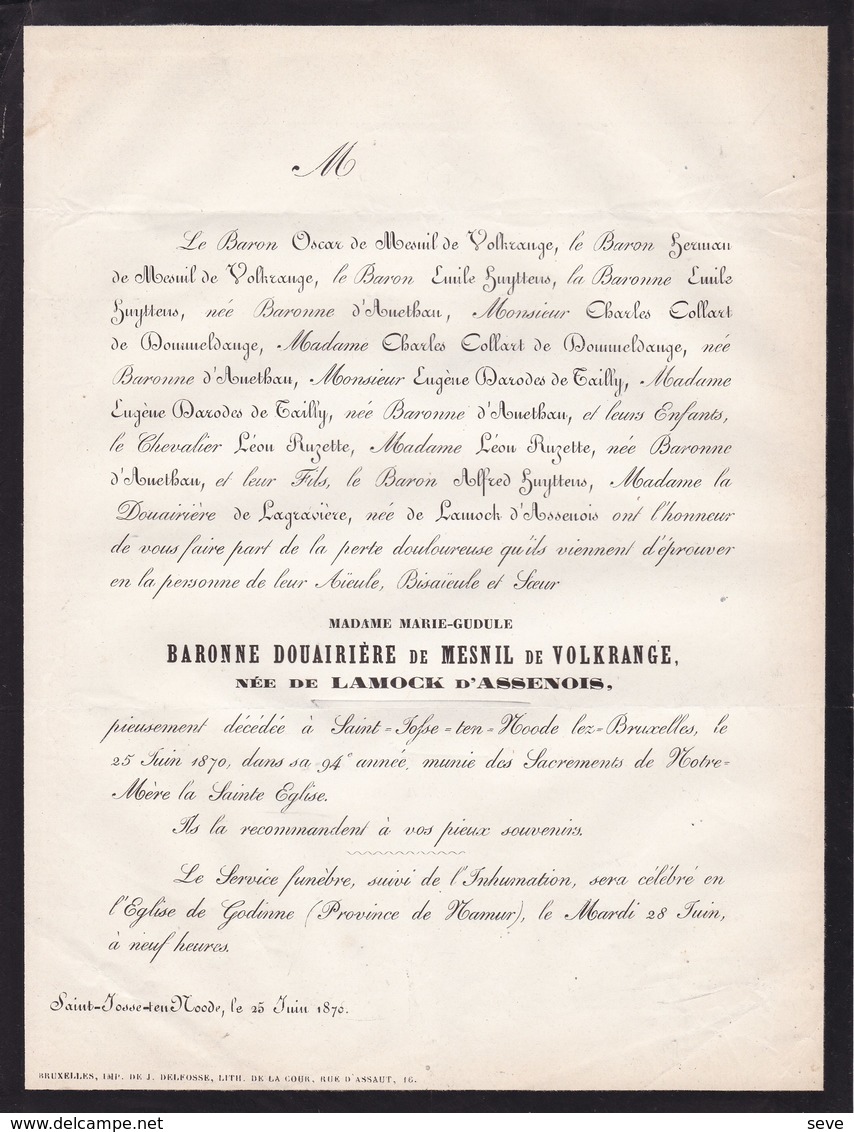 M
Le Baron Oscar de Mesnil de Volkrange, le Baron Herman
de Mesnil de Volkrange, le Baron Emile Huyttens, la Baronne Emile
Huyttens, née Baronne d'Anethan, Monsieur Charles Collart
de Dommeldange, Madame Charles Collart de Dommeldange, née
Baronne d'Anethan, Monsieur Eugène Darodes de Tailly, Madame
Eugène Darodes de Tailly, née Baronne d'Anethan, et leurs Enfants,
le Chevalier Léon Ruzette, Madame Léon Ruzette, née Baronne
d'Anethan, et leur Fils, le Baron Alfred Huyttens, Madame la
Douairière de Lagravière, née de Lamock d'Assenois ont l'honneur
de vous faire part de la perte douloureuse qu'ils viennent d'éprouver
en la personne de leur Aïeule, Bisaïeule et Sœur
MADAME MARIE-GUDULE
BARONNE DOUAIRIÈRE DE MESNIL DE VOLKRANGE,
NÉE DE LAMOCK D'ASSENOIS,
pieusement décédée à Saint-Josse-ten-Noode lez-Bruxelles, le
25 Juin 1870, dans sa 94e année, munie des Sacrements de Notre-
Mère la Sainte Eglise.
Ils la recommandent à vos pieux souvenirs.
Le Service funèbre, suivi de l'Inhumation, sera célébré en
l'Eglise de Godinne (Province de Namur), le Mardi 28 Juin,
à neuf heures.
Saint-Josse-ten Noode, le 25 Juin 1870.
BRUXELLES, IMP. DE J. DELFOSSE, LITH. DE LA COUR, RUE D'ASSAUT, 16.
www.delcampe.net
seve